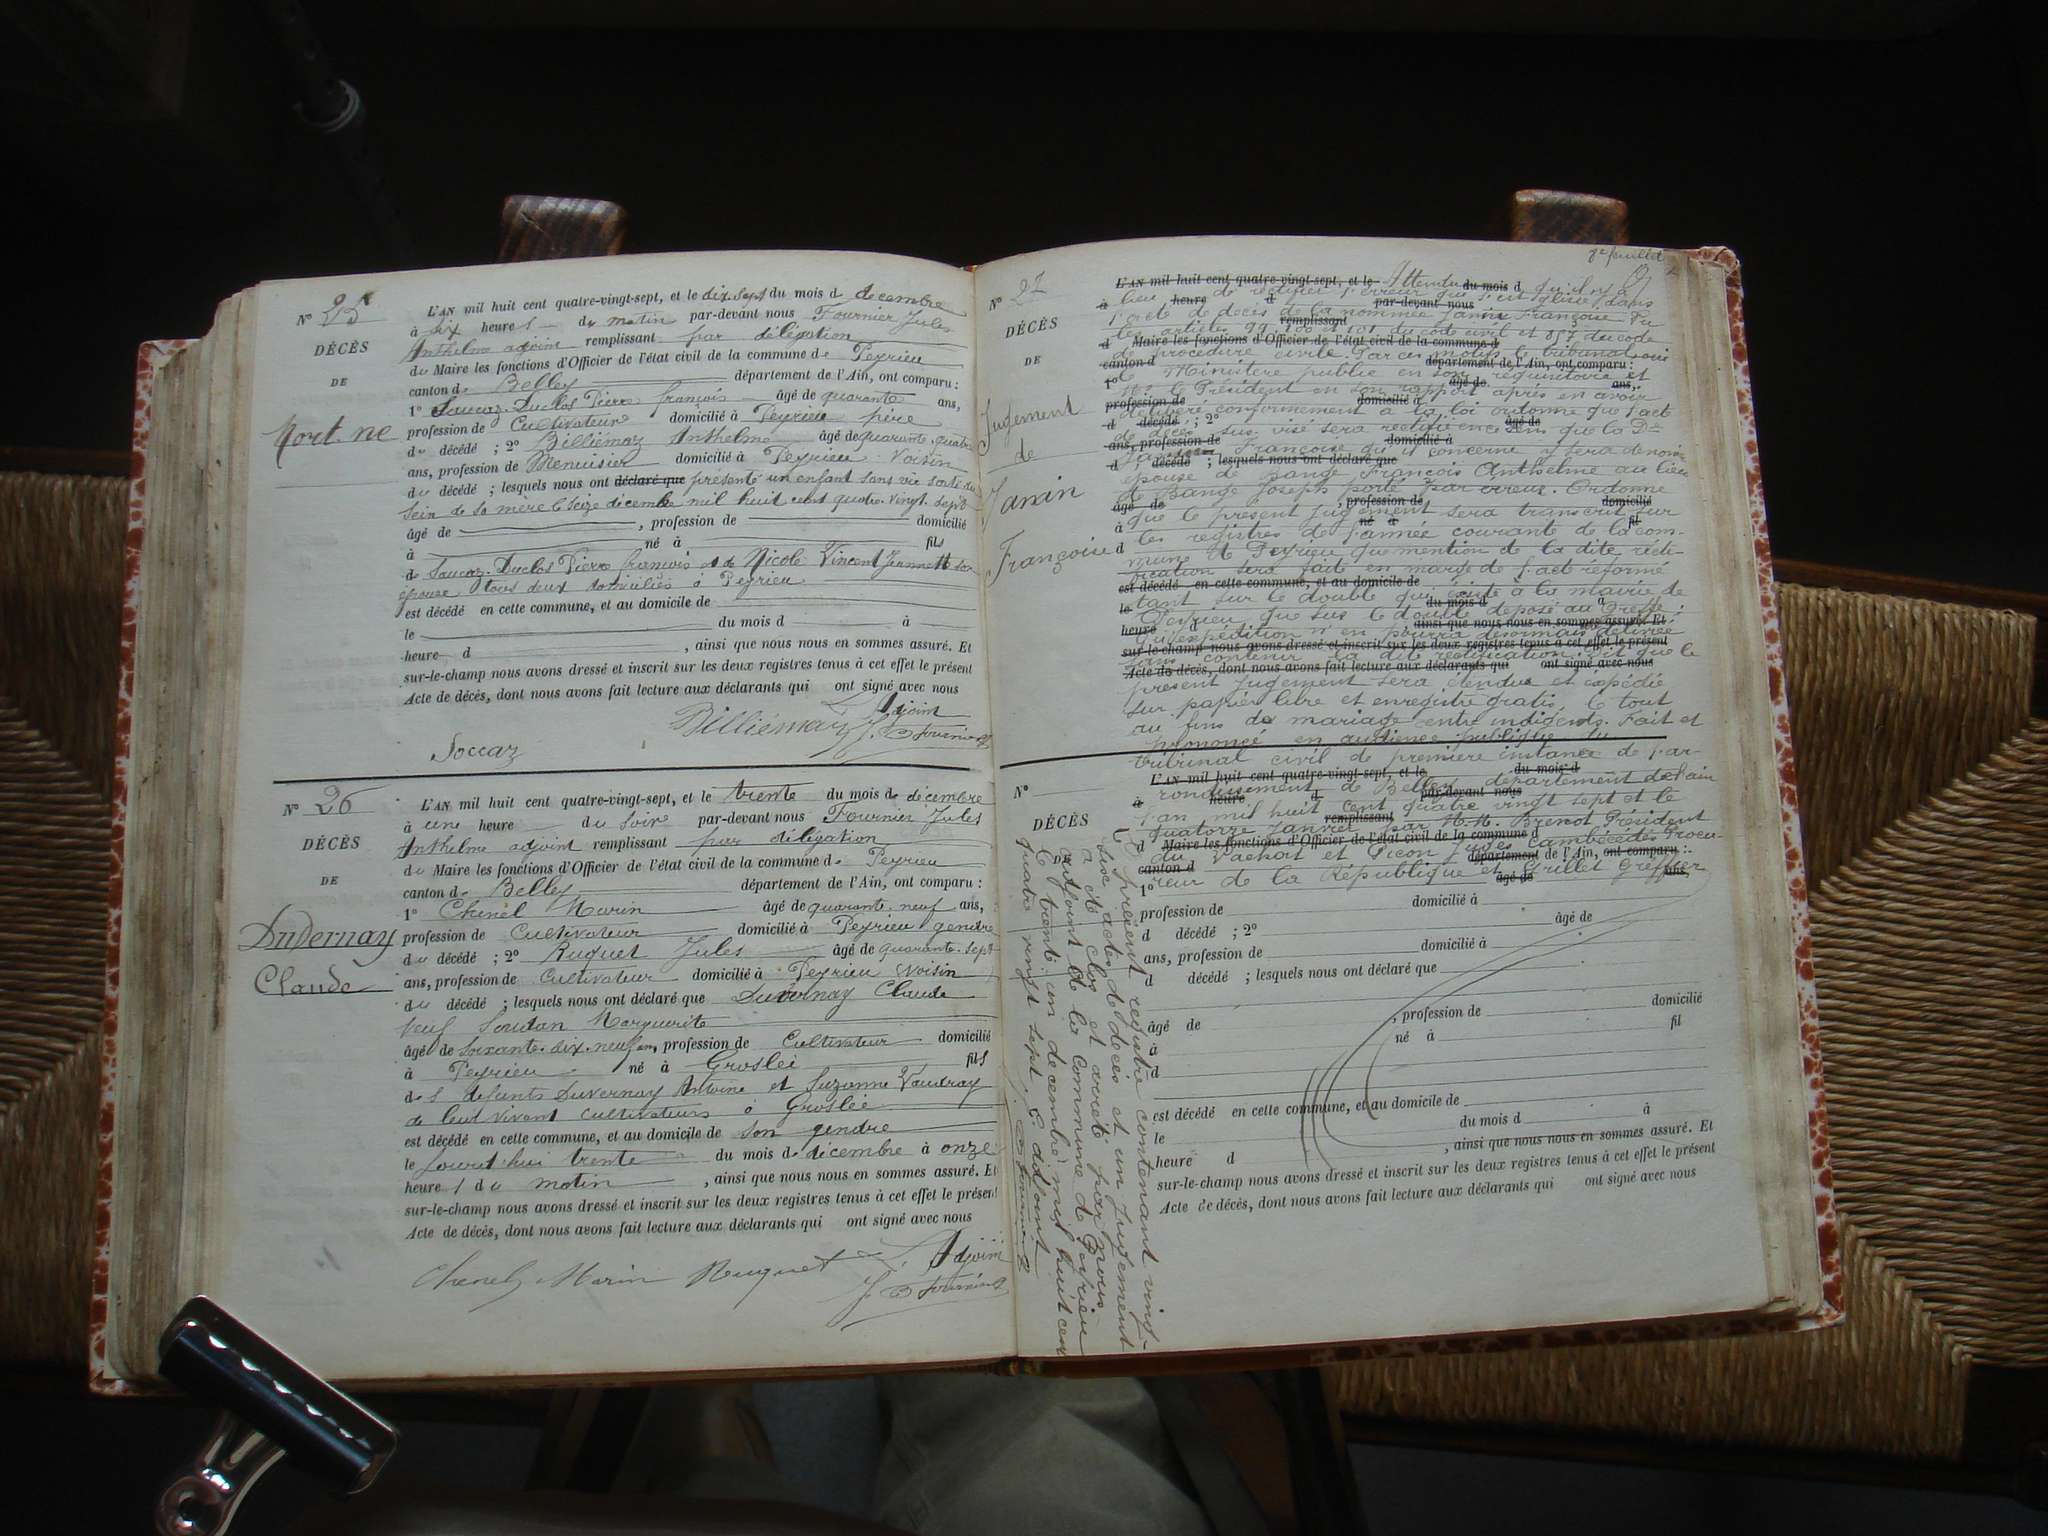 Nº 25
DÉCÈS
DE
Mort-né
L'AN mil huit cent quatre-vingt-sept, et le dix-sept du mois d décembre
à six heure s du matin par-devant nous Fournier Jules
Anthelme adjoint remplissant par délégation
du Maire les fonctions d'Officier de l'état civil de la commune de Peyrieu
canton de Belley département de l'Ain, ont comparu :
1º Saucaz-Duclos Pierre françois âgé de quarante ans,
profession de Cultivateur domicilié à Peyrieu père
du décédé ; 2º Billiémaz Anthelme âgé de quarante-quatre
ans, profession de Menuisier domicilié à Peyrieu Voisin
du décédé ; lesquels nous ont déclaré que présenté un enfant sans vie sorti du
sein de sa mère le seize décembre mil huit cent quatre-vingt-sept
âgé de , profession de domicilié
à né à fils
de Saucaz-Duclos Pierre françois et de Nicole Vincent Jeannette son
épouse tous deux domiciliés à Peyrieu
est décédé en cette commune, et au domicile de
le du mois d à
heure d , ainsi que nous nous en sommes assuré. Et
sur-le-champ nous avons dressé et inscrit sur les deux registres tenus à cet effet le présent
Acte de décès, dont nous avons fait lecture aux déclarants qui ont signé avec nous
Billiémaz L'Adjoint
J. Fournier
Soccaz
Nº 26
DÉCÈS
DE
Duvernay
Claude
L'AN mil huit cent quatre-vingt-sept, et le trente du mois de décembre
à une heure du soir par-devant nous Fournier Jules
Anthelme adjoint remplissant par délégation
du Maire les fonctions d'Officier de l'état civil de la commune de Peyrieu
canton de Belley département de l'Ain, ont comparu :
1º Chenel Marin âgé de quarante-neuf ans,
profession de Cultivateur domicilié à Peyrieu gendre
du décédé ; 2º Ruguet Jules âgé de quarante-sept
ans, profession de Cultivateur domicilié à Peyrieu Voisin
du décédé ; lesquels nous ont déclaré que Duvernay Claude
veuf Soudan Marguerite
âgé de soixante-dix-neuf ans, profession de Cultivateur domicilié
à Peyrieu né à Groslée fils
de s défunts Duvernay Antoine et Suzanne Vaudray
de leur vivant cultivateurs à Groslée
est décédé en cette commune, et au domicile de son gendre
le jourd'hui trente du mois de décembre à onze
heure s du matin , ainsi que nous nous en sommes assuré. Et
sur-le-champ nous avons dressé et inscrit sur les deux registres tenus à cet effet le présent
Acte de décès, dont nous avons fait lecture aux déclarants qui ont signé avec nous
Chenel Marin Ruguet L'Adjoint
J. Fournier
Nº 27
DÉCÈS
DE
Jugement
de
Janin
Françoise
L'AN mil huit cent quatre-vingt-sept, et le Attendu du mois d qu'il y a
à heure d par-devant nous
lieu de rectifier l'erreur qui s'est glissée dans
l'acte de décès de la nommée Janin Françoise Vu
remplissant
les articles 99, 100 et 101 du code civil et 857 du code
d Maire les fonctions d'Officier de l'état civil de la commune d
de procédure civile. Par ces motifs le tribunal, ouï
canton d département de l'Ain, ont comparu :
le Ministère public en son réquisitoire et
1º âgé de ans,
Mr le Président en son rapport après en avoir
profession de domicilié à
délibéré conformément à la loi ordonne que l'acte
d décédé ; 2º âgé de
de décès sus visé sera rectifié en ce sens que la De
ans, profession de domicilié à
Janin Françoise qu'il concerne y sera dénom
d décédé ; lesquels nous ont déclaré que
épouse de Bange François Anthelme au lieu
de Bange Joseph porté par erreur. Ordonne
âgé de , profession de domicilié
que le présent jugement sera transcrit sur
à né à fil
les registres de l'année courante de la com-
d
mune de Peyrieu que mention de la dite recti-
fication sera faite en marge de l'acte réformé
est décédé en cette commune, et au domicile de
tant sur le double qui existe à la mairie de
le du mois d à
Peyrieu que sus le double déposé au Greffe ;
heure d ainsi que nous nous en sommes assuré. Et
qu'expédition n'en pourra désormais délivrée
sur-le-champ nous avons dressé et inscrit sur les deux registres tenus à cet effet le présent
sans contenir la dite rectification. Dit que le
Acte de décès, dont nous avons fait lecture aux déclarants qui ont signé avec nous
présent jugement sera étendue et expédié
sur papier libre et enregistré gratis, le tout
au fins de mariage entre indigents. Fait et
prononcé en audience publique du
tribunal civil de première instance de l'ar-
Nº
DÉCÈS
L'AN mil huit cent quatre-vingt-sept, et le du mois d
rondissement de Belley département de l'ain
à heure d par-devant nous
l'an mil huit cent quatre vingt sept et le
remplissant
quatorze Janvier par M.M. Brenot Président
d Maire les fonctions d'Officier de l'état civil de la commune d
du Vachon et Picon juges Cambécédès Procu-
canton d département de l'Ain, ont comparu :
reur de la République et Grillet Greffier
1º âgé de ans,
profession de domicilié à
d décédé ; 2º âgé de
ans, profession de domicilié à
d décédé ; lesquels nous ont déclaré que
âgé de , profession de domicilié
à né à fil
d
est décédé en cette commune, et au domicile de
le du mois d à
heure d , ainsi que nous nous en sommes assuré. Et
sur-le-champ nous avons dressé et inscrit sur les deux registres tenus à cet effet le présent
Acte de décès, dont nous avons fait lecture aux déclarants qui ont signé avec nous
Le présent registre contenant ving-
t six actes de décès et un jugement
a été clos et arrêté par nous
adjoint de la Commune de Peyrieu
le trente-un décembre mil huit cent
quatre vingt sept L'adjoint
J. Fournier